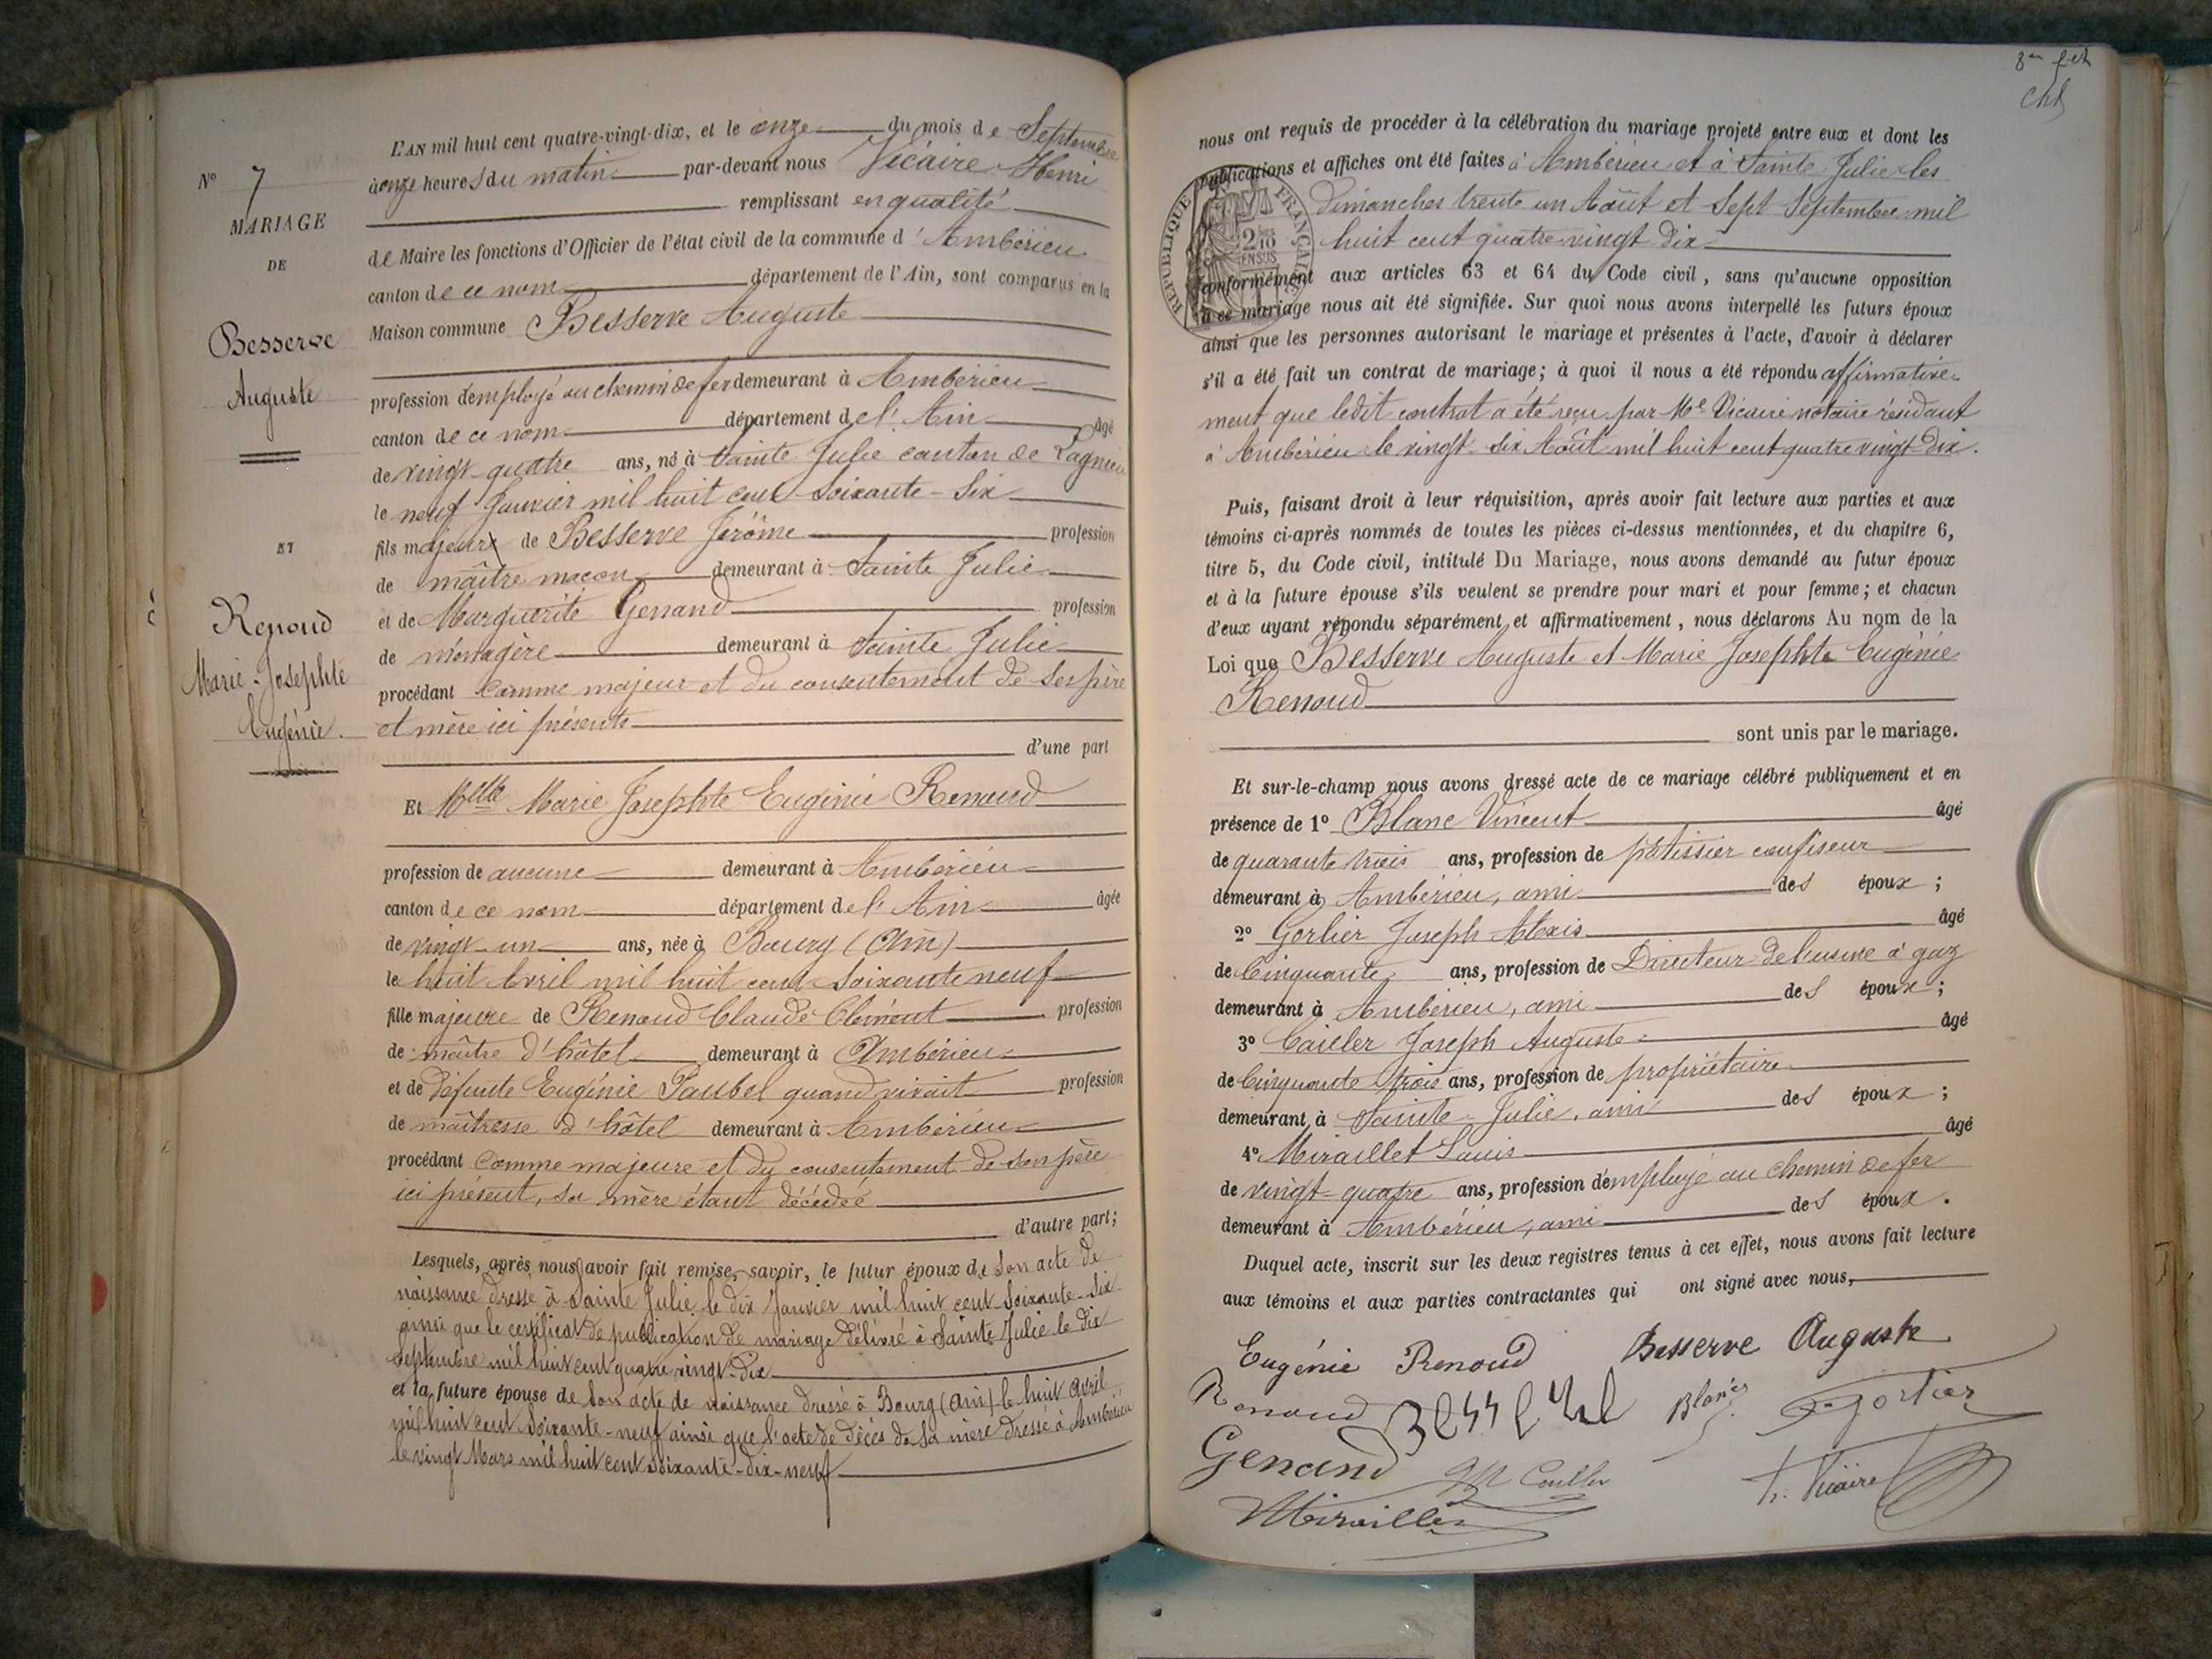 N° 7
MARIAGE
DE
Besserve
Auguste
ET
Renoud
Marie-Josephte
Eugénie.
L'AN mil huit cent quatre-vingt-dix, et le onze du mois de Septembre
à onze heures du matin par-devant nous Vicaire Henri
remplissant en qualité
de Maire les fonctions d'Officier de l'état civil de la commune d'Ambérieu
canton de ce nom département de l'Ain, sont comparus en la
Maison commune Besserve Auguste
profession d'employé au chemin de fer demeurant à Ambérieu
canton de ce nom département de l'Ain âgé
de vingt-quatre ans, né à Sainte Julie canton de Lagnieu
le neuf Janvier mil huit cent soixante-six
fils majeur de Besserve Jérôme profession
de maître maçon demeurant à Sainte Julie
et de Marguerite Genand profession
de ménagère demeurant à Sainte Julie
procédant comme majeur et du consentement de ses père
et mère ici présents
d'une part
Et Melle Marie Josephte Eugénie Renoud
profession de aucune demeurant à Ambérieu
canton de ce nom département de l'Ain âgée
de vingt-un ans, née à Bourg (Ain)
le huit Avril mil huit cent soixante neuf
fille majeure de Renoud Claude Clément profession
de maître d'hôtel demeurant à Ambérieu
et de défunte Eugénie Paubel quand vivait profession
de maîtresse d'hôtel demeurant à Ambérieu
procédant comme majeure et du consentement de son père
ici présent, sa mère étant décédée
d'autre part;
Lesquels, après nous avoir fait remise, savoir, le futur époux de son acte de
naissance dressé à Sainte Julie le dix Janvier mil huit cent soixante-six
ainsi que le certificat de publication de mariage délivré à Sainte Julie le dix
Septembre mil huit cent quatre vingt-dix
et la future épouse de son acte de naissance dressé à Bourg (Ain) le huit Avril
mil huit cent soixante-neuf ainsi que l'acte de décès de sa mère dressé à Ambérieu
le vingt Mars mil huit cent soixante-dix-neuf
nous ont requis de procéder à la célébration du mariage projeté entre eux et dont les
publications et affiches ont été faites à Ambérieu et à Sainte Julie les
dimanches trente un Août et sept Septembre mil
huit cent quatre-vingt dix
RÉPUBLIQUE FRANÇAISE
2/10
EN SUS
conformément aux articles 63 et 64 du Code civil, sans qu'aucune opposition
à ce mariage nous ait été signifiée. Sur quoi nous avons interpellé les futurs époux
ainsi que les personnes autorisant le mariage et présentes à l'acte, d'avoir à déclarer
s'il a été fait un contrat de mariage; à quoi il nous a été répondu affirmative-
ment que ledit contrat a été reçu par Me Vicaire notaire résidant
à Ambérieu le vingt-six Août mil huit cent quatre vingt-dix.
Puis, faisant droit à leur réquisition, après avoir fait lecture aux parties et aux
témoins ci-après nommés de toutes les pièces ci-dessus mentionnées, et du chapitre 6,
titre 5, du Code civil, intitulé Du Mariage, nous avons demandé au futur époux
et à la future épouse s'ils veulent se prendre pour mari et pour femme; et chacun
d'eux ayant répondu séparément et affirmativement, nous déclarons Au nom de la
Loi que Besserve Auguste et Marie Josephte Eugénie
Renoud
sont unis par le mariage.
Et sur-le-champ nous avons dressé acte de ce mariage célébré publiquement et en
présence de 1° Blanc Vincent âgé
de quarante trois ans, profession de pâtissier confiseur
demeurant à Ambérieu, ami des époux;
2° Gorlier Joseph Alexis âgé
de Cinquante ans, profession de Directeur de l'usine à gaz
demeurant à Ambérieu, ami des époux;
3° Cailler Joseph Auguste âgé
de Cinquante trois ans, profession de propriétaire
demeurant à Sainte-Julie, ami des époux;
4° Miraillet Louis âgé
de vingt-quatre ans, profession d'employé au chemin de fer
demeurant à Ambérieu, ami des époux.
Duquel acte, inscrit sur les deux registres tenus à cet effet, nous avons fait lecture
aux témoins et aux parties contractantes qui ont signé avec nous,
Eugénie Renoud Besserve Auguste
Renoud Blanc Gorlier
Genand Cailler H. Vicaire